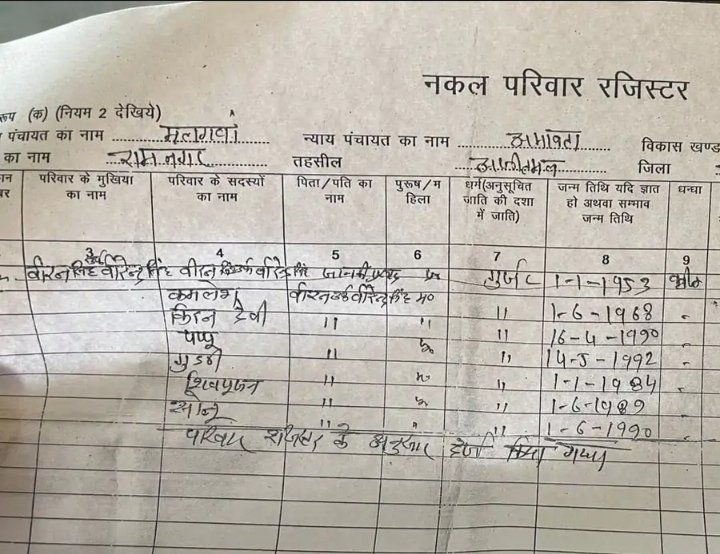 नकल परिवार रजिस्टर
रूप (क) (नियम 2 देखिये)
पंचायत का नाम मलगवां न्याय पंचायत का नाम विकास खण्ड
का नाम राम नगर तहसील अजीतमल जिला
परिवार के मुखिया का नाम परिवार के सदस्यों का नाम पिता/पति का नाम पुरूष/महिला धर्म(अनुसूचित जाति की दशा में जाति) जन्म तिथि यदि ज्ञात हो अथवा सम्भाव जन्म तिथि धन्धा
3 4 5 6 7 8 9
वीरन सिंह उर्फ वीरेन्द्र सिंह वीरन सिंह उर्फ वीरेन्द्र सिंह जानकी प्रसाद पु० गुर्जर 1-1-1953
कमलेश वीरन उर्फ वीरेन्द्र सिंह म० " 1-6-1968
किरन देवी " " " 16-4-1990
पप्पू पु० " 14-5-1992
गुड्डी " म० " 1-1-1984
शिवपूजन " पु० " 1-6-1989
सानू " " " 1-6-1990
परिवार रजिस्टर के अनुसार दर्ज किया गया